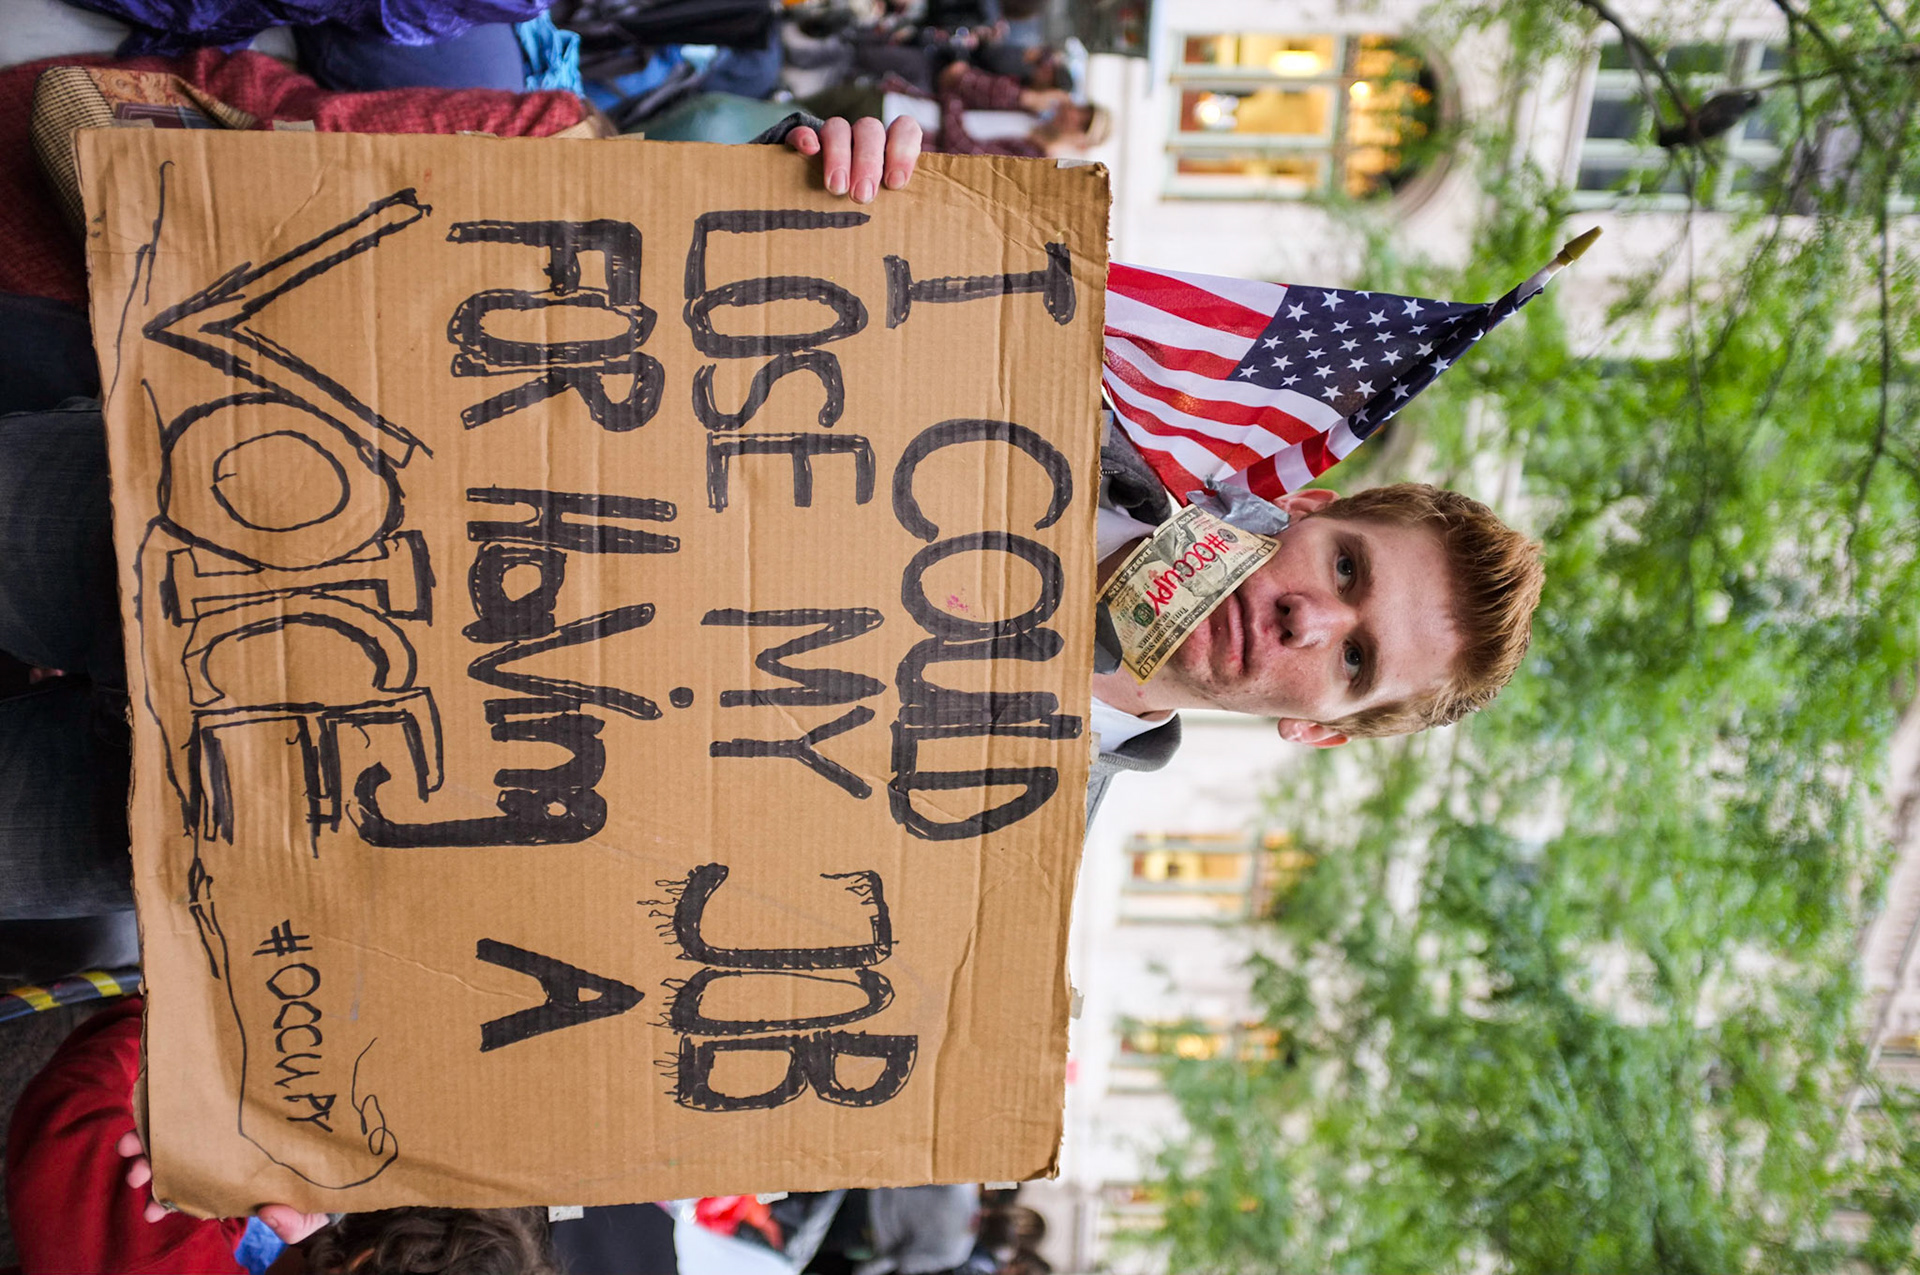 I COULD
LOSE MY JOB
FOR HaViNg A
VOICE
#OCCUPY
#OCCUPY